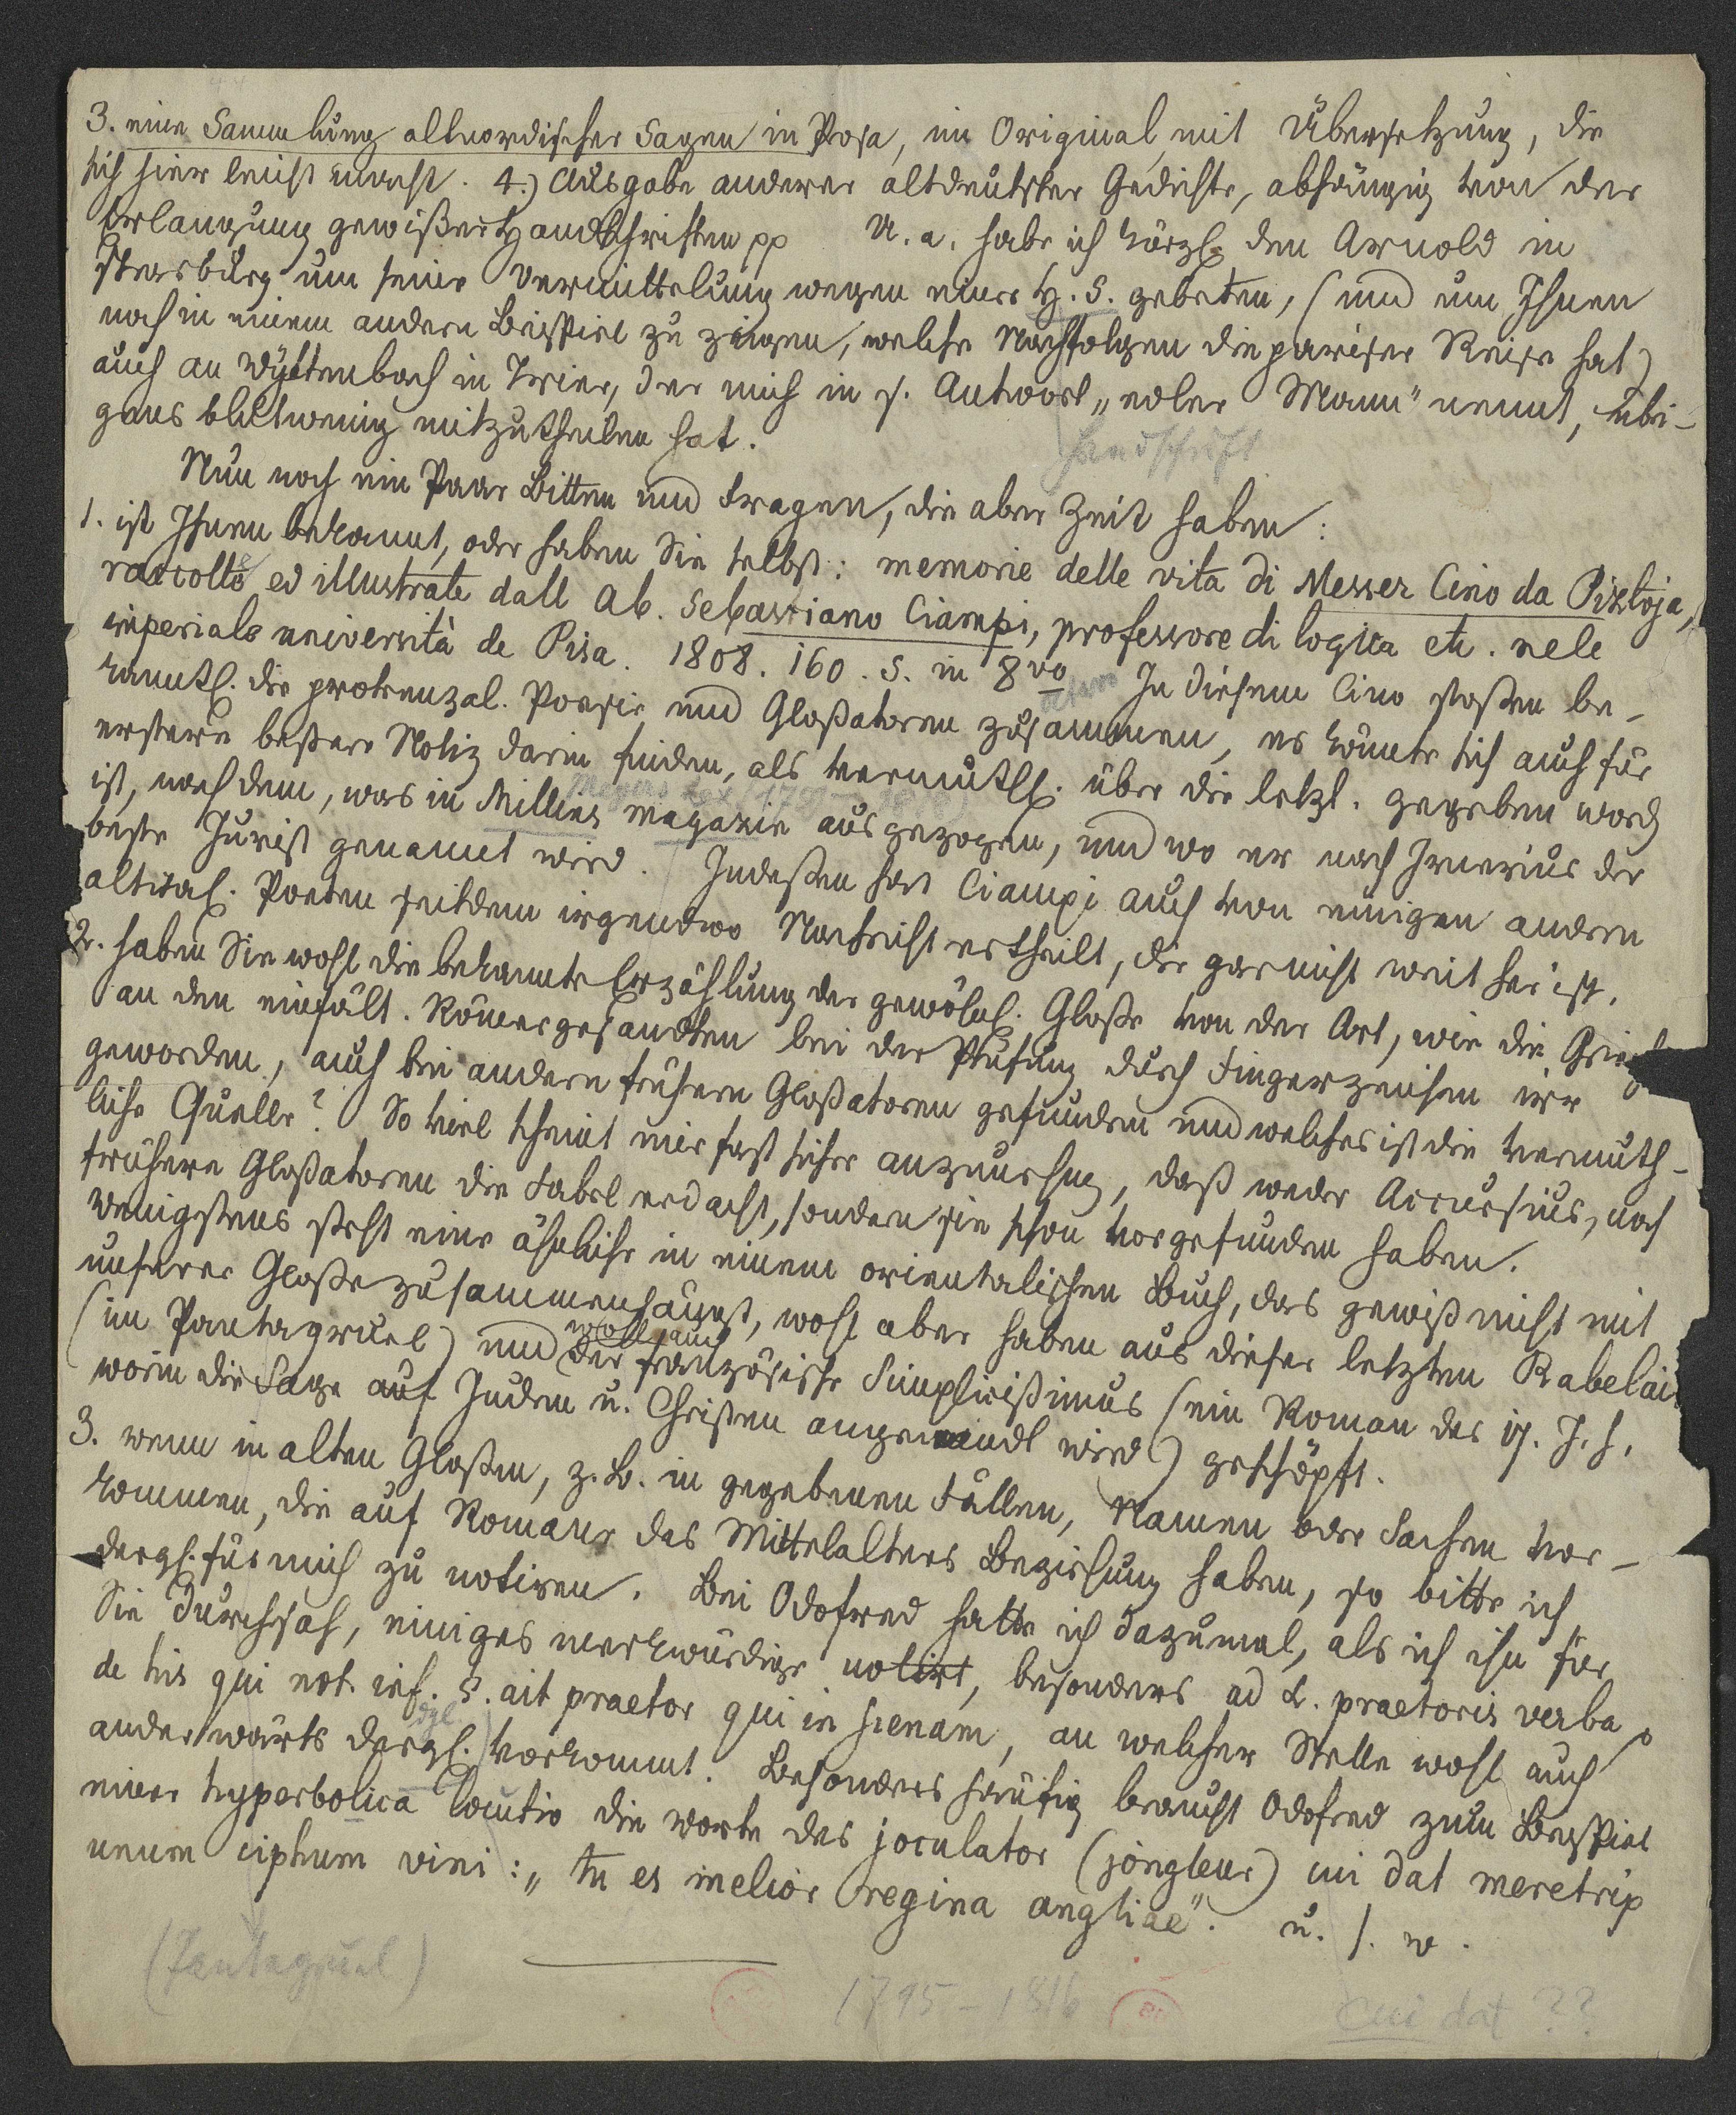 3. eine Sammlung altnordischer Sagen in Prosa, im Original mit Übersetzung, die
sich hier leicht macht. 4.) Ausgabe anderer altdeutscher Gedichte, abhängig von der
Erlangung gewißer Handschriften pp U. a. habe ich kürzl. den Arnold in
Strasburg um seine Vermittelung wegen einer H. S. gebeten, (und um Ihnen
noch in einem andern Beispiel zu zeigen, welche Nachfolgen die pariser Reise hat)
auch an Wyttenbach in Trier, der mich in s. Antwort „edler Mann" nennt, übri-
gens blutwenig mitzutheilen hat.
Handschrift
Nun noch ein Paar Bitten und Fragen, die aber Zeit haben:
1. ist Ihnen bekannt, oder haben Sie selbst: memorie delle vita di Messer Cino da Pistoja,
raccolte ed illustrate dall Ab. Sebastiano Ciampi, professore di logica etc. nele
imperiale università de Pisa. 1808. 160. S. in 8vo In diesem Cino stoßen be-
kanntl. die provenzal. Poesie und Gloßatoren zusammen, es könnte sich auch für
erstere beßere Notiz darin finden, als vermuthl. über die letzt. gegeben word
ist, nach dem, was in Millins magazin ausgezogen, und wo er nach Irnerius der
beste Jurist genannt wird. Indeßen hat Ciampi auch von einigen andern
altital. Poeten seitdem irgendwo Nachricht ertheilt, die gar nicht weit her ist.
2. haben Sie wohl die bekannte Erzählung der gewöhnl. Gloße von der Art, wie die Griech
an den einfält. Römergesandten bei der Prüfung durch Fingerzeichen irre
geworden, auch bei andern frühern Gloßatoren gefunden und welches ist die vermuth-
liche Quelle? So viel scheint mir fast sicher anzunehmen, daß weder Accursius, noch
frühere Gloßatoren die Fabel erdacht, sondern sie schon vorgefunden haben.
Wenigstens steht eine ähnliche in einem orientalischen Buch, das gewiß nicht mit
unserer Gloße zusammenhängt, wohl aber haben aus dieser letzten Rabelai
(im Pantagruel) und wohl auch der französische Simplicißimus (ein Roman des 17. J. h.
worin die Sage auf Juden u. Christen angewendet wird) geschöpft.
3. wenn in alten Gloßen, z. B. in gegebenen Fällen, Namen oder Sachen vor-
kommen, die auf Romane des Mittelalters Beziehung haben, so bitte ich
dergl. für mich zu notiren. Bei Odofred hatte ich dazumal, als ich ihn für
Sie durchsah, einiges merkwürdige notirt, besonders ad L. praetoris verba
de his qui not. inf. §. ait praetor qui in scenam, an welcher Stelle wohl auch
anderwärts dergl. vorkommt. Besonders häufig braucht Odofred zum Beispiel
einer hyperbolica locutio die Worte des joculator (jongleur) cui dat meretrip
unum ciphum vini: „tu es melior regina angliae". u. s. w.
1795-1816
cui dat ??